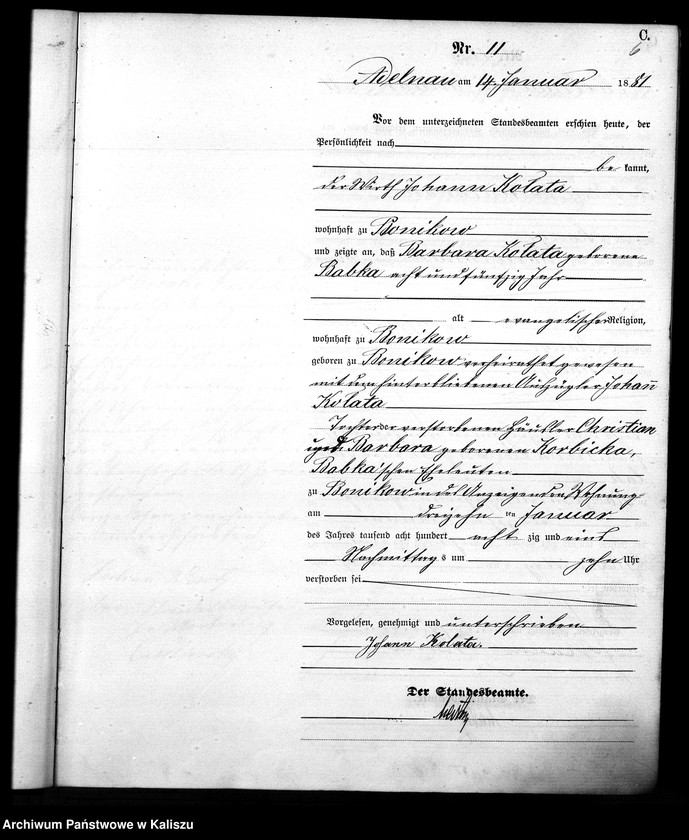 C.
6
Nr. 11
Adelnau am 14. Januar 1881
Vor dem unterzeichneten Standesbeamten erschien heute, der
Persönlichkeit nach
be kannt,
der Wirth Johann Kołata
wohnhaft zu Bonikow
und zeigte an, daß Barbara Kołata geborene
Babka acht und fünfzig Jahr
alt evangelischer Religion,
wohnhaft zu Bonikow
geboren zu Bonikow verheirathet gewesen
mit dem hinterbliebenen Auszügler Johann
Kołata
Tochter der verstorbenen Häusler Christian
und Barbara geborenen Korbicka,
Babka'schen Eheleuten
zu Bonikow in des Anzeigenden Wohnung
am dreizehn ten Januar
des Jahres tausend acht hundert acht zig und eins
Nachmittag s um zehn Uhr
verstorben sei
Vorgelesen, genehmigt und unterschrieben
Johann Kolata.
Der Standesbeamte.
Archiwum Państwowe w Kaliszu